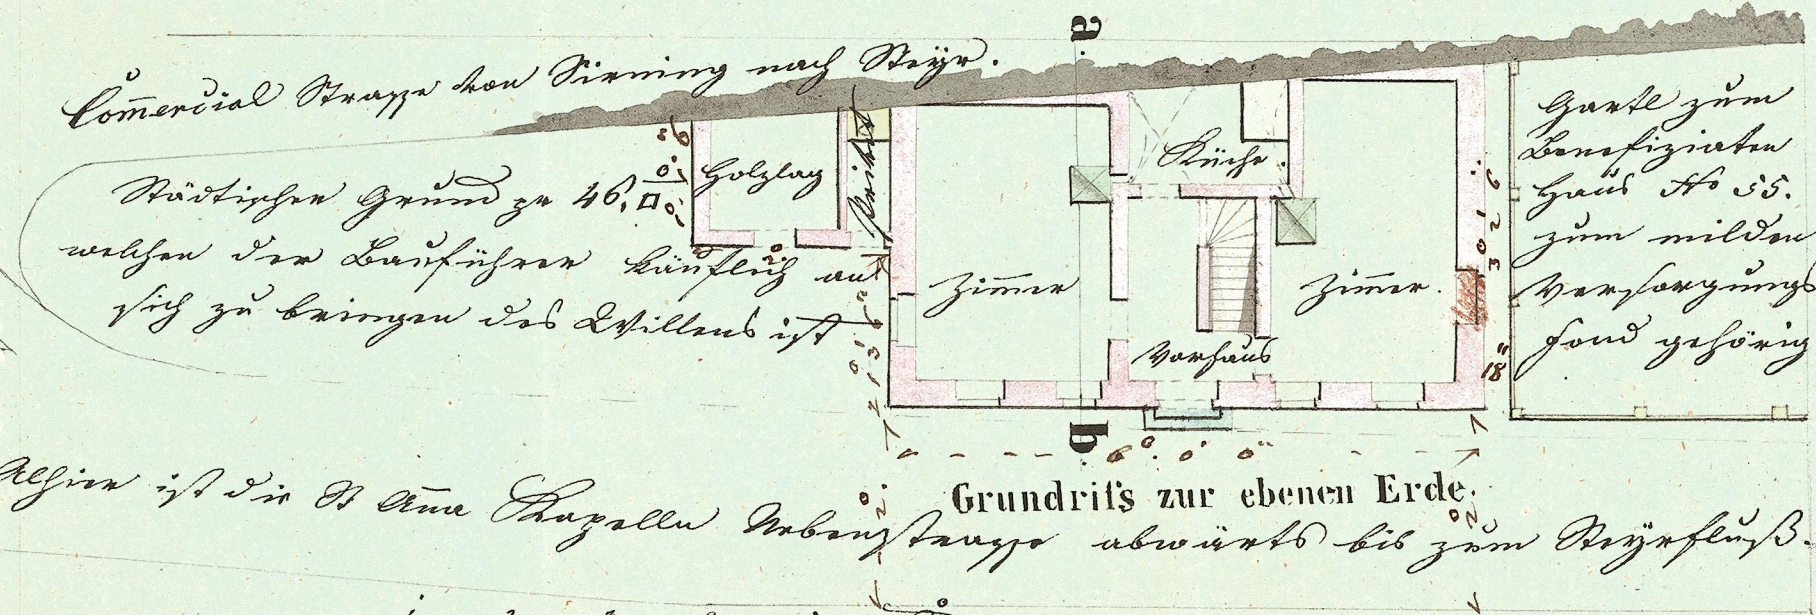 a
Com̅ercial Strasse von Sirning nach Steyr.
Städtischer Grund pr 46,
welchen der Bauführer käuflich an
sich zu bringen des Willens ist
Holzlag
Privet
Küche.
Zim̅er
Zim̅er.
Vorhaus
Gartl zum
Benefiziaten
Haus No 55.
zum milden
Versorgungs
Fond gehörig
18"
b
6° 0' 0"
Grundriſs zur ebenen Erde.
Alhier ist die St An̅a Kapelle Nebenstrasse abwärts bis zum Steyrfluß.